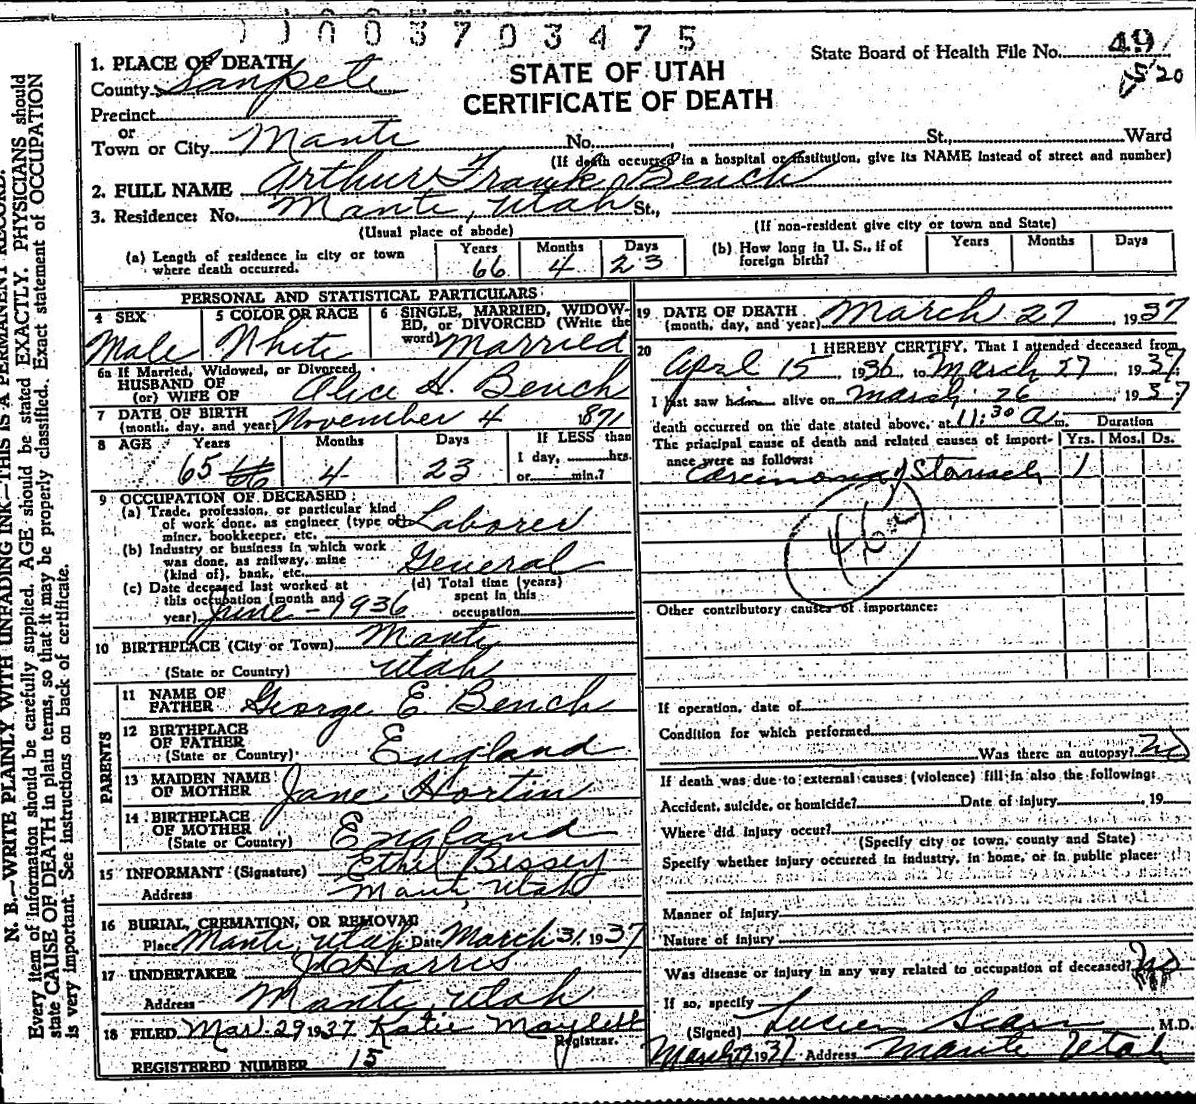 0 0 3 7 0 3 4 7 5
State Board of Health File No. 49
520
STATE OF UTAH
CERTIFICATE OF DEATH
1. PLACE OF DEATH
County Sanpete
Precinct
or
Town or City Manti No. , St., Ward
(If death occurred in a hospital or institution, give its NAME instead of street and number)
2. FULL NAME Arthur Frank Bench
3. Residence: No. Manti, Utah St.,
(Usual place of abode) (If non-resident give city or town and State)
(a) Length of residence in city or town where death occurred. Years 66 Months 4 Days 23
(b) How long in U. S., if of foreign birth? Years Months Days
PERSONAL AND STATISTICAL PARTICULARS
4 SEX Male
5 COLOR OR RACE White
6 SINGLE, MARRIED, WIDOWED, or DIVORCED (Write the word) Married
6a If Married, Widowed, or Divorced
HUSBAND OF
(or) WIFE OF Alice H. Bench
7 DATE OF BIRTH
(month, day, and year) November 4 1871
8 AGE Years 65 66 Months 4 Days 23
If LESS than
1 day, hrs.
or min.?
9 OCCUPATION OF DECEASED:
(a) Trade, profession, or particular kind
of work done, as engineer (type of)
miner, bookkeeper, etc. Laborer
(b) Industry or business in which work
was done, as railway, mine
(kind of), bank, etc. General
(c) Date deceased last worked at
this occupation (month and
year) June - 1936
(d) Total time (years)
spent in this
occupation
10 BIRTHPLACE (City or Town) Manti
(State or Country) Utah
PARENTS
11 NAME OF
FATHER George E. Bench
12 BIRTHPLACE
OF FATHER
(State or Country) England
13 MAIDEN NAME
OF MOTHER Jane Hortin
14 BIRTHPLACE
OF MOTHER
(State or Country) England
15 INFORMANT (Signature) Ethel Bessey
Address Manti, Utah
16 BURIAL, CREMATION, OR REMOVAL
Place Manti, Utah Date March 31, 1937
17 UNDERTAKER Harris
Address Manti, Utah
18 FILED Mar. 29 1937 Katie Maylett
Registrar.
REGISTERED NUMBER 15
19 DATE OF DEATH
(month, day, and year) March 27, 1937
20 I HEREBY CERTIFY, That I attended deceased from
April 15, 1936, to March 27, 1937.
I last saw him alive on March 26, 1937
death occurred on the date stated above, at 11:30 a m.
Duration
The principal cause of death and related causes of importance were as follows: Yrs. Mos. Ds.
Carcinoma of Stomach 1
46
Other contributory causes of importance:
If operation, date of
Condition for which performed
Was there an autopsy? No
If death was due to external causes (violence) fill in also the following:
Accident, suicide, or homicide? Date of injury , 19
Where did injury occur?
(Specify city or town, county and State)
Specify whether injury occurred in industry, in home, or in public place:
Manner of injury
Nature of injury
Was disease or injury in any way related to occupation of deceased? No
If so, specify
(Signed) Lucien Sears M.D.
March 1937 Address Manti Utah
N. B.—WRITE PLAINLY WITH UNFADING INK—THIS IS A PERMANENT RECORD.
Every item of information should be carefully supplied. AGE should be stated EXACTLY. PHYSICIANS should
state CAUSE OF DEATH in plain terms, so that it may be properly classified. Exact statement of OCCUPATION
is very important. See instructions on back of certificate.